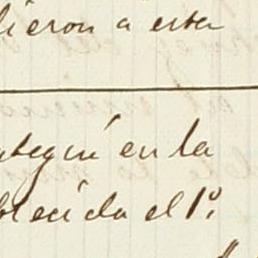 lieron a esta
ategui en la
blecida el 1º.